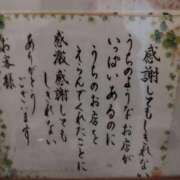 感謝してもしきれない
うちのようなお店が
いっぱいあるのに
うちのお店を
えらんでくれたことに
感激 感謝しても
しきれない
ありがとう
ございます
お客様